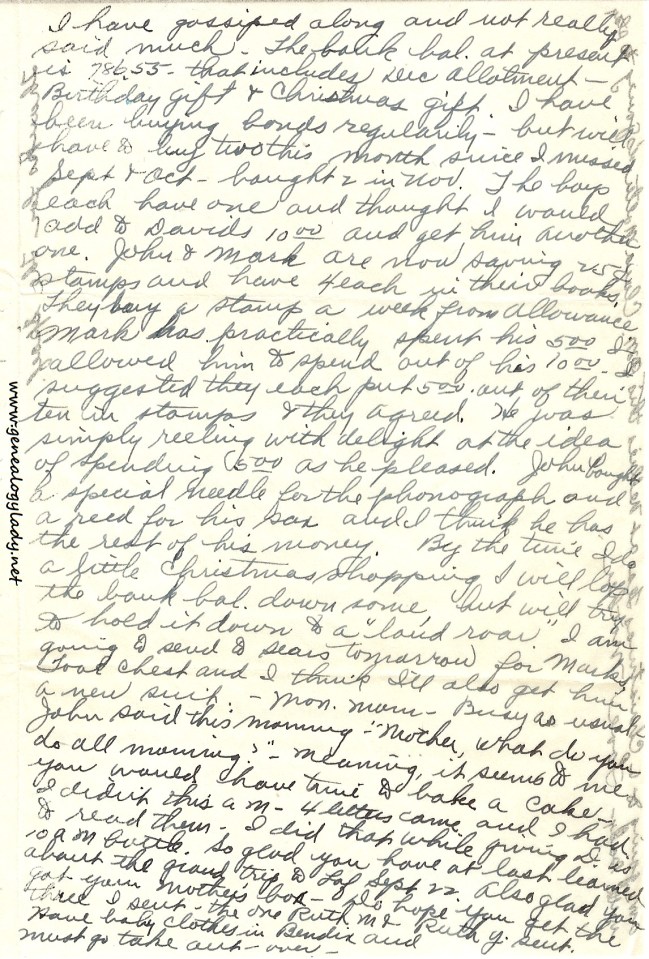 I have gossiped along and not really
said much - The bank bal. at present
is 786.55 - that includes Dec allotment -
Birthday gift & Christmas gift. I have
been buying bonds regularly - but will
have to buy two this month since I missed
Sept & Oct - bought 2 in Nov. The boys
each have one and thought I would
add to Davids 10 00 and get him another
one. John & Mark are now saving 25¢
stamps and have 4 each in their books.
They buy a stamp a week from allowance
Mark has practically spent his 5 00 I
allowed him to spend out of his 10 00 - I
suggested they each put 5 00 out of their
ten in stamps & they agreed. He was
simply reeling with delight at the idea
of spending 5 00 as he pleased. John bought
a special needle for the phonograph and
a reed for his sax and I think he has
the rest of his money. By the time I do
a little Christmas shopping I will lop
the bank bal. down some but will try
to hold it down to a "loud roar" I am
going to send to Sears tomorrow for Mark's
Tool chest and I think I'll also get him
a new suit - Mon. morn - Busy as usual
John said this morning - "Mother, what do you
do all morning?" - meaning, it seems to me
you would have time to bake a cake -
I didn't this a m - 4 letters came and I had
to read them - I did that while giving D. his
10 a m bottle. So glad you have at last learned
about the grand trip to Sept 22. Also glad you
got your Mother's box - Do hope you get the
three I sent - the one Ruth M & Ruth Y. sent.
Have baby clothes in Bendix and
must go take out - over -
www.genealogylady.net